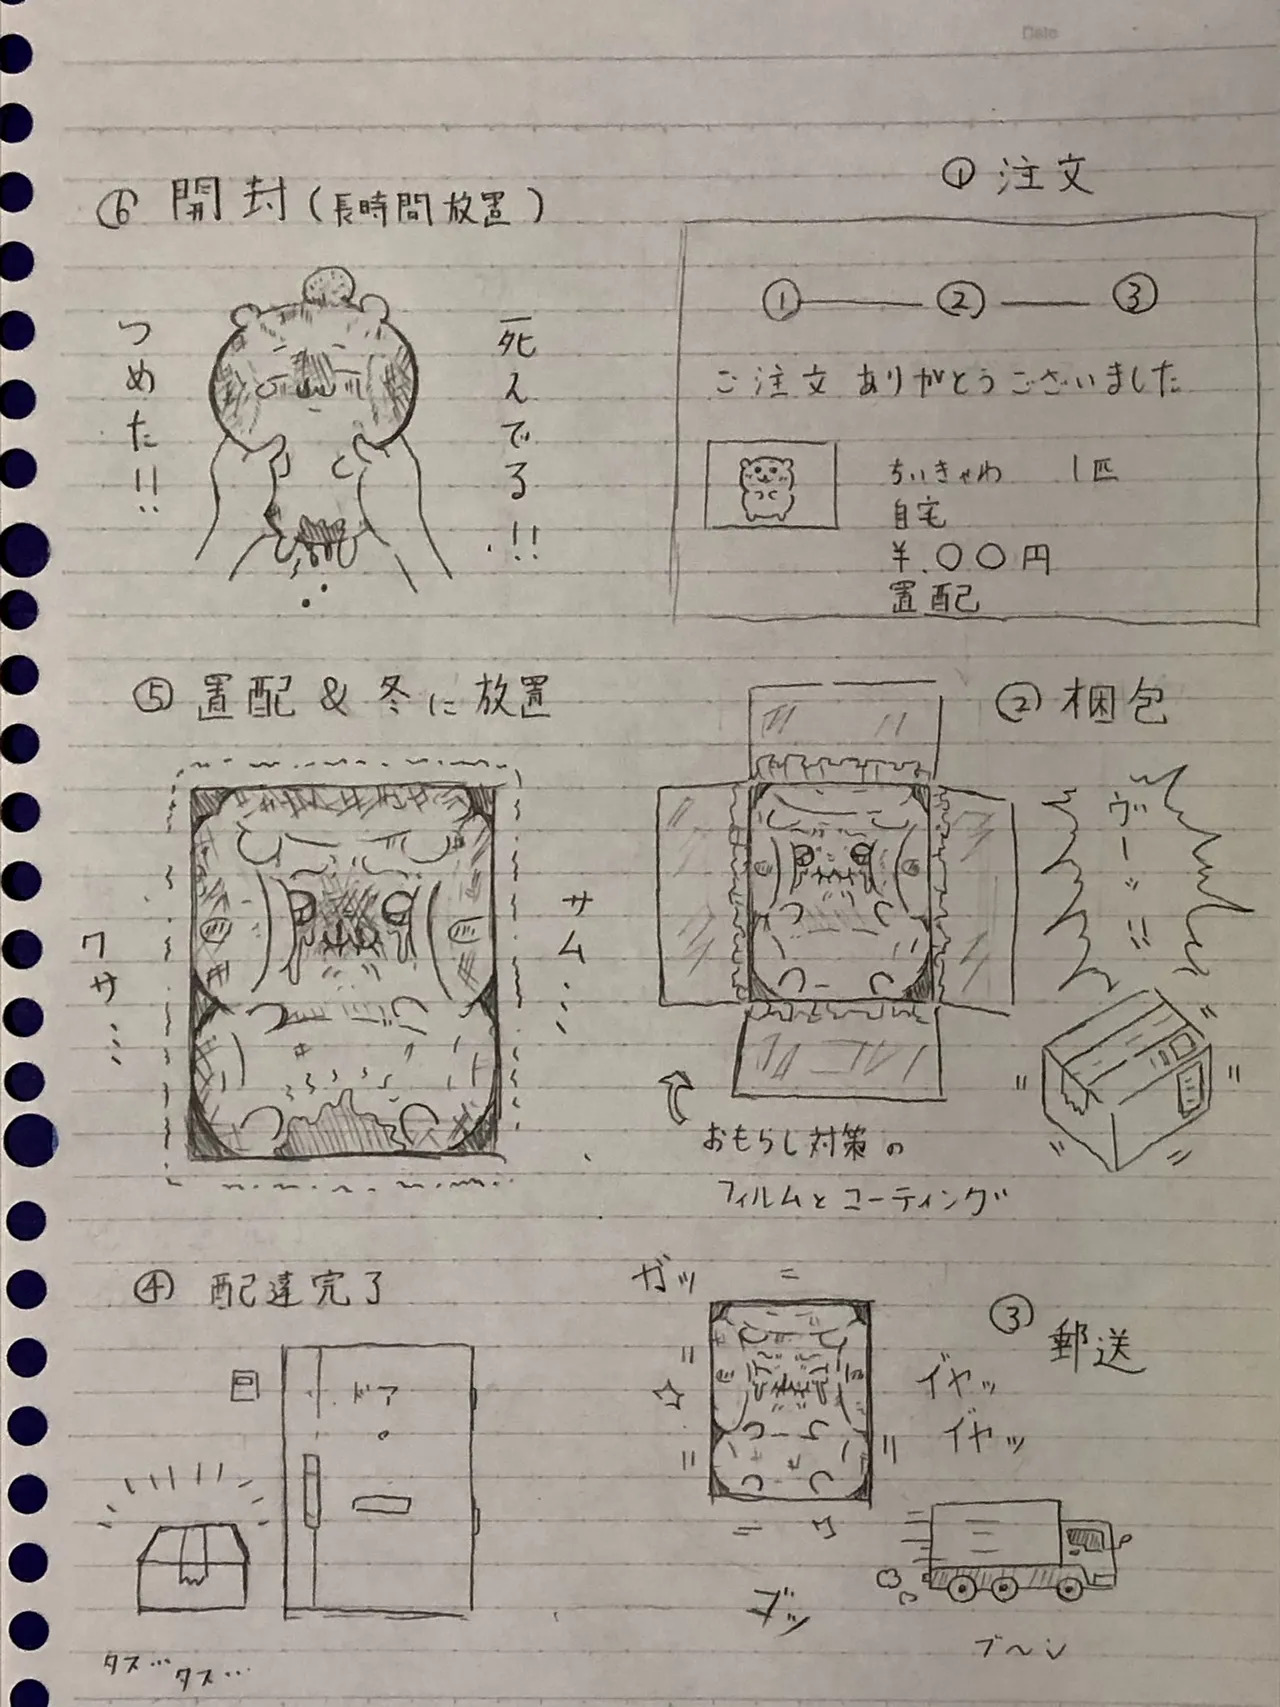 Date
① 注文
① ② ③
ご注文ありがとうございました
ちいきゃわ 1匹
自宅
¥.〇〇円
置配
② 梱包
ヴーッ!!
おもらし対策の
フィルムとコーティング
③ 郵送
ガッ
イヤッ
イヤッ
ブッ
ブ〜ン
④ 配達完了
ドア
タス… タス…
⑤ 置配 & 冬に放置
サム……
ワサ……
⑥ 開封(長時間放置)
死んでる!!
つめた!!